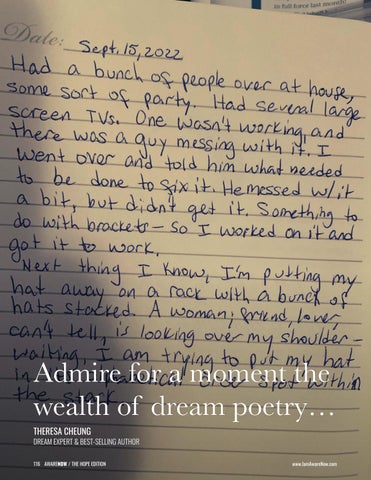 in full force last month!
Date: Sept. 15, 2022
Had a bunch of people over at house,
some sort of party. Had several large
screen TVs. One wasn't working, and
there was a guy messing with it. I
went over and told him what needed
to be done to fix it. He messed w/it
a bit, but didn't get it. Something to
do with brackets - so I worked on it and
got it to work.
Next thing I know, I'm putting my
hat away on a rack with a bunch of
hats stacked. A woman, friend, lover,
can't tell, is looking over my shoulder -
waiting. I am trying to put my hat
in spot within
the stack
Admire for a moment the
wealth of dream poetry…
THERESA CHEUNG
DREAM EXPERT & BEST-SELLING AUTHOR
116 AWARENOW / THE HOPE EDITION
www.IamAwareNow.com